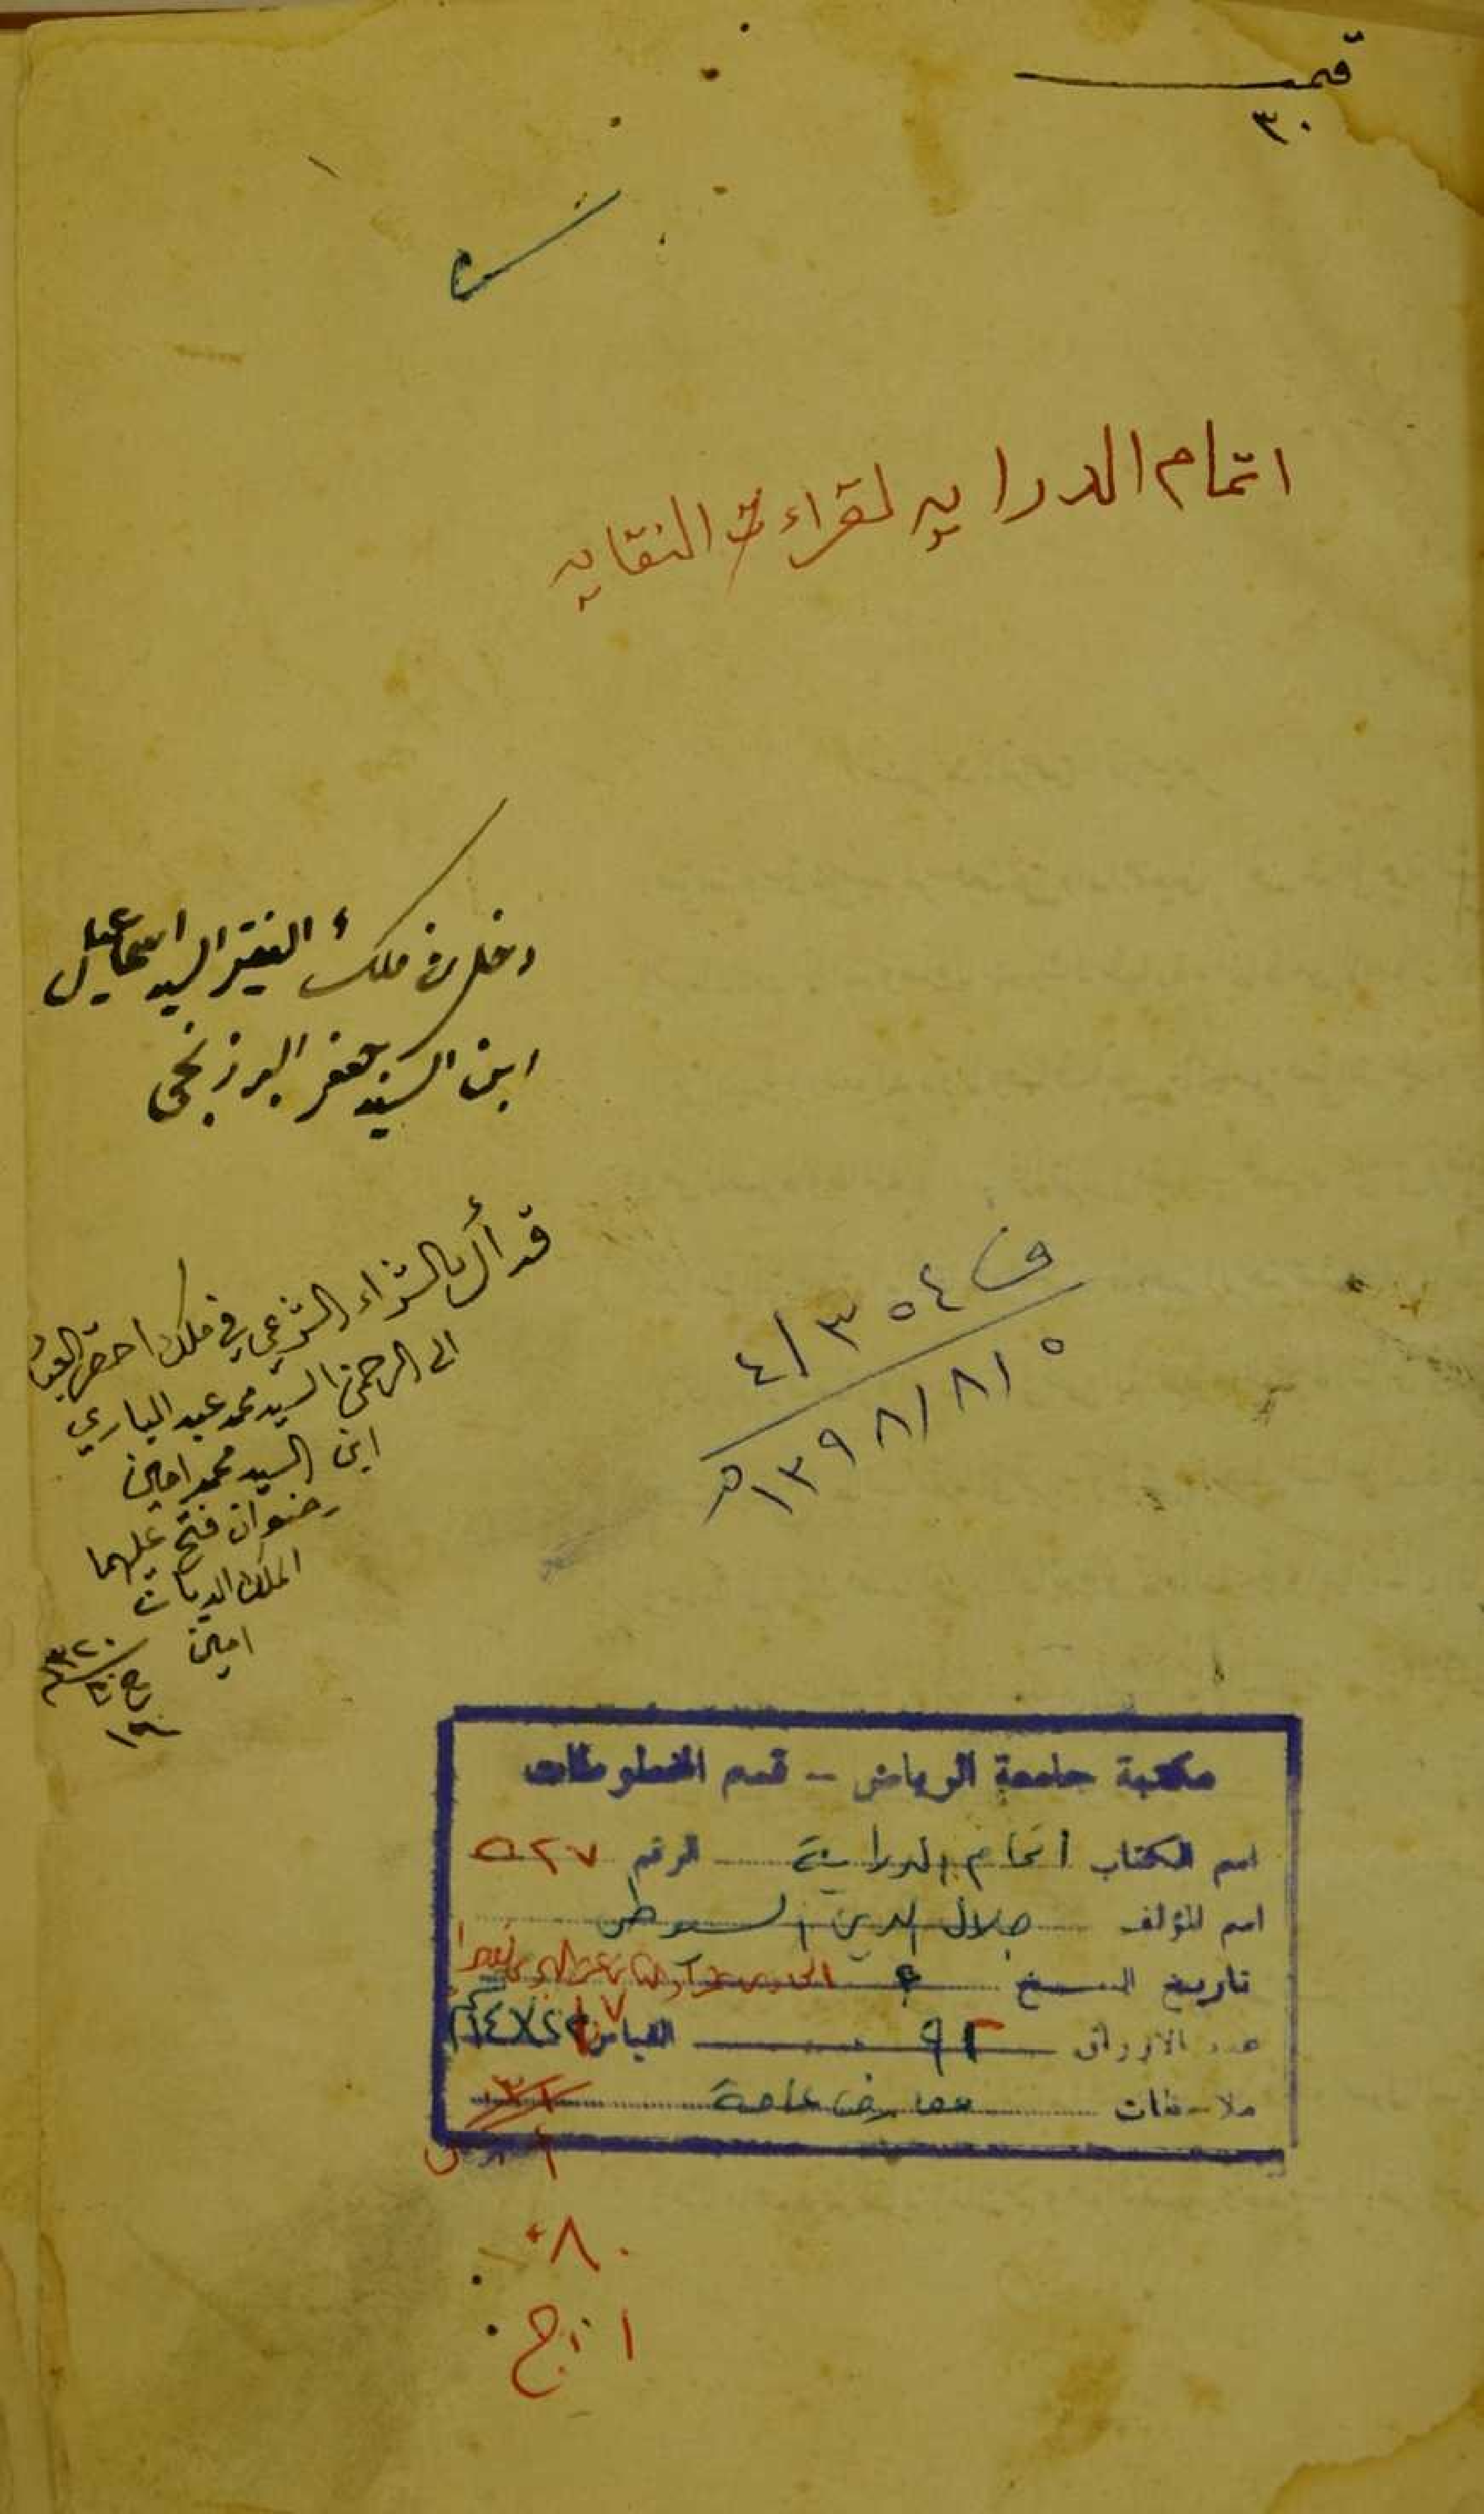 ٣٠
اتمام الدرايه لقراءة النقايه
دخل في ملك الفقير السيد اسماعيل
ابن السيد جعفر البرزنجي
قد آل بالشراء الشرعي في ملك احقر العباد
الى الرحمن السيد محمد عبد الباري
ابن السيد محمد امين
رضوان فتح عليهما
الملك الديان
امين
١٣٢٠
ف ٤/٣٥٤
١٣٩٨/٨/٥ هـ
مكتبة جامعة الرياض - قسم المخطوطات
اسم الكتاب اتمام الدراية الرقم ٥٢٧
اسم المؤلف جلال الدين السيوطي
تاريخ النسخ الحادي عشر
عدد الاوراق ٩٢ القياس
ملاحظات معارف عامة
٠٨٠